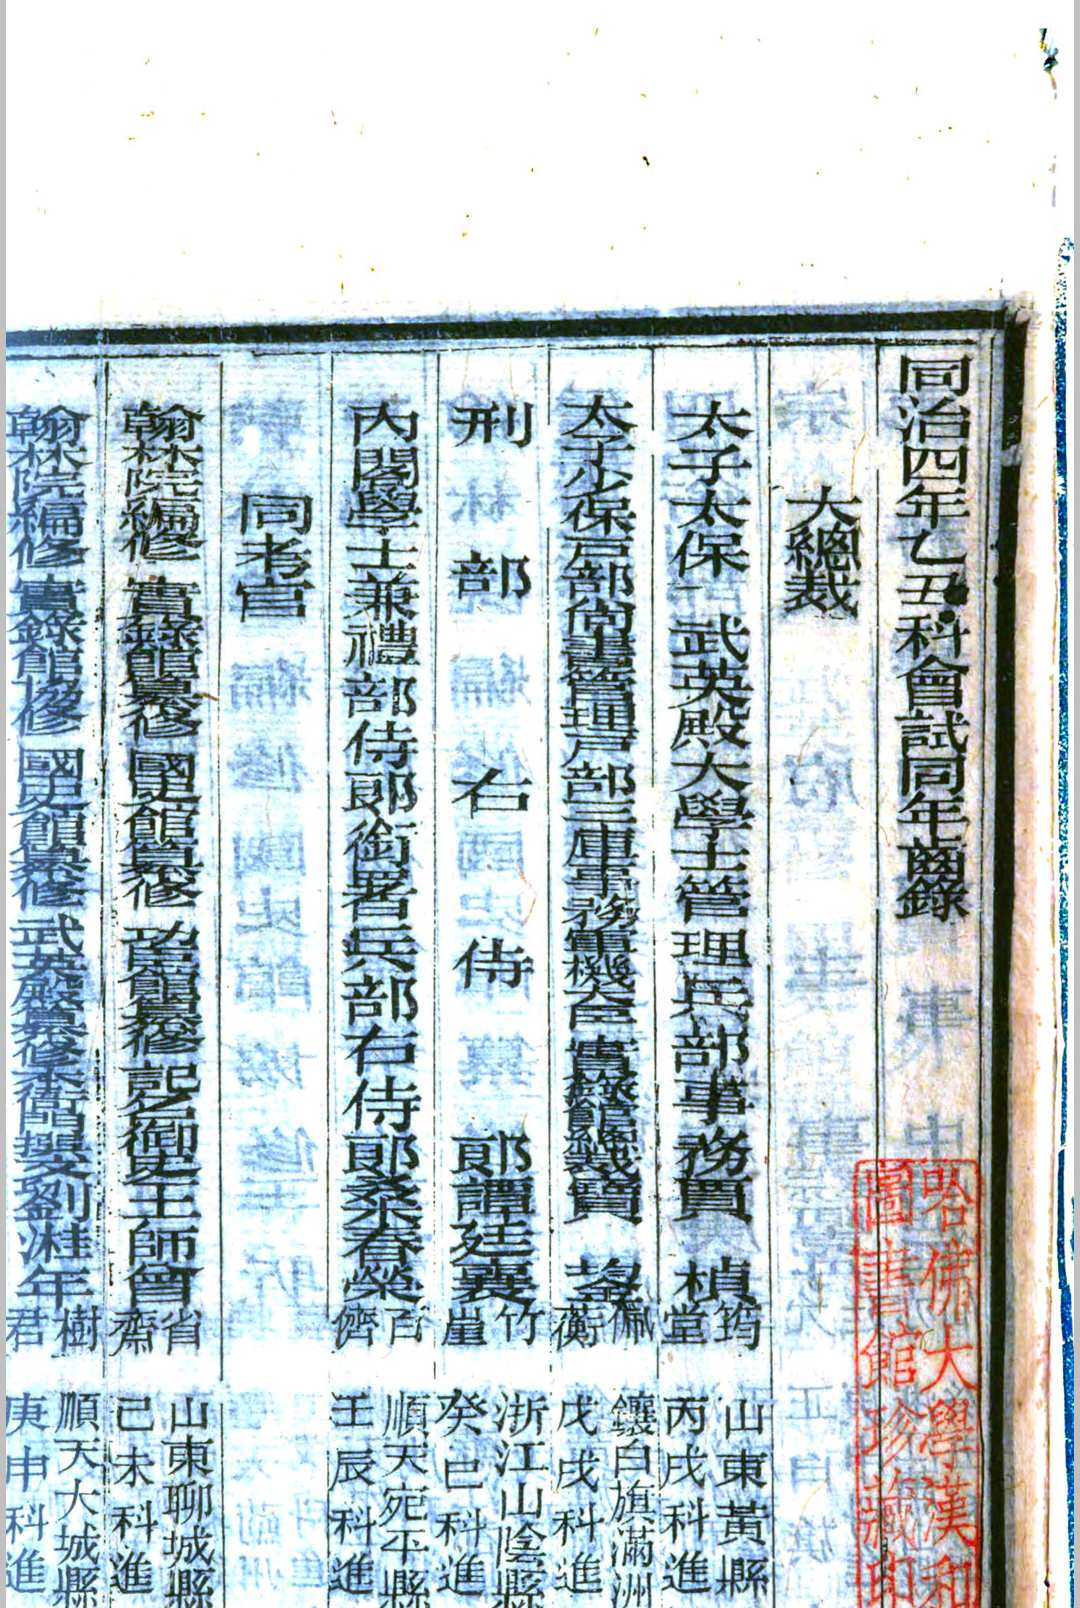 同治四年乙丑科會試同年齒錄
大總裁
太子太保 武英殿大學士管理兵部事務賈 楨 筠堂 山東黃縣 丙戌科進
太子少保戶部尚書管理戶部三庫事務軍機大臣實錄館總裁寶 鋆 佩蘅 鑲白旗滿洲 戊戌科進
刑部右侍郞譚廷襄 竹崖 浙江山陰縣 癸巳科進
內閣學士兼禮部侍郞銜署兵部右侍郞桑春榮 百儕 順天宛平縣 壬辰科進
同考官
翰林院編修 實錄館纂修 國史館纂修 功臣館纂修 記名御史王師曾 省齋 山東聊城縣 己未科進
翰林院編修 實錄館協修 國史館纂修 武英殿纂修 劉淮年 樹君 順天大城縣 庚申科進
哈佛大學漢和
圖書館珍藏印